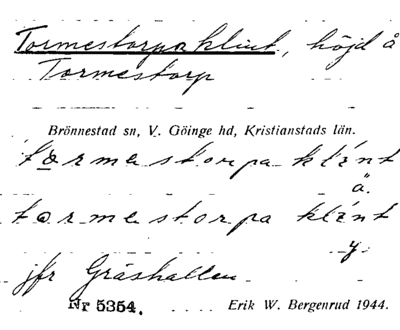 Tormestorpa klint, höjd å
Tormestorp
Brönnestad sn, V. Göinge hd, Kristianstads län.
tormestorpa klint
ä.
tormestorpa klint
y.
jfr Gråshallen
Nr 5354. Erik W. Bergenrud 1944.